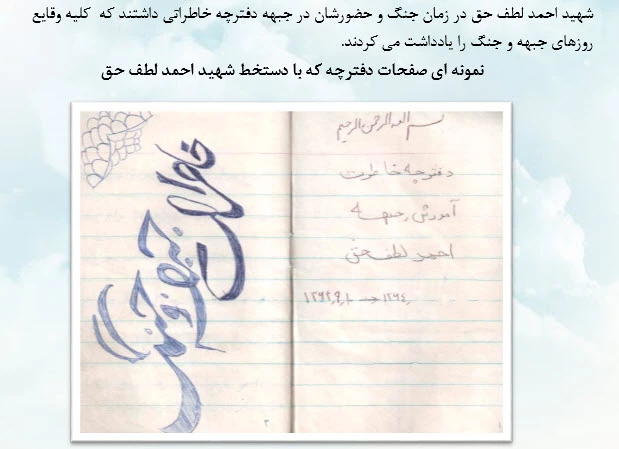 شهید احمد لطف حق در زمان جنگ و حضورشان در جبهه دفترچه خاطراتی داشتند که کلیه وقایع
روزهای جبهه و جنگ را یادداشت می کردند.
نمونه ای صفحات دفترچه که با دستخط شهید احمد لطف حق
بسم الله الرحمن الرحیم
دفترچه خاطرات
آموزشی جبهه
احمد لطف حق
خاطرات
جبهه و جنگ
۲